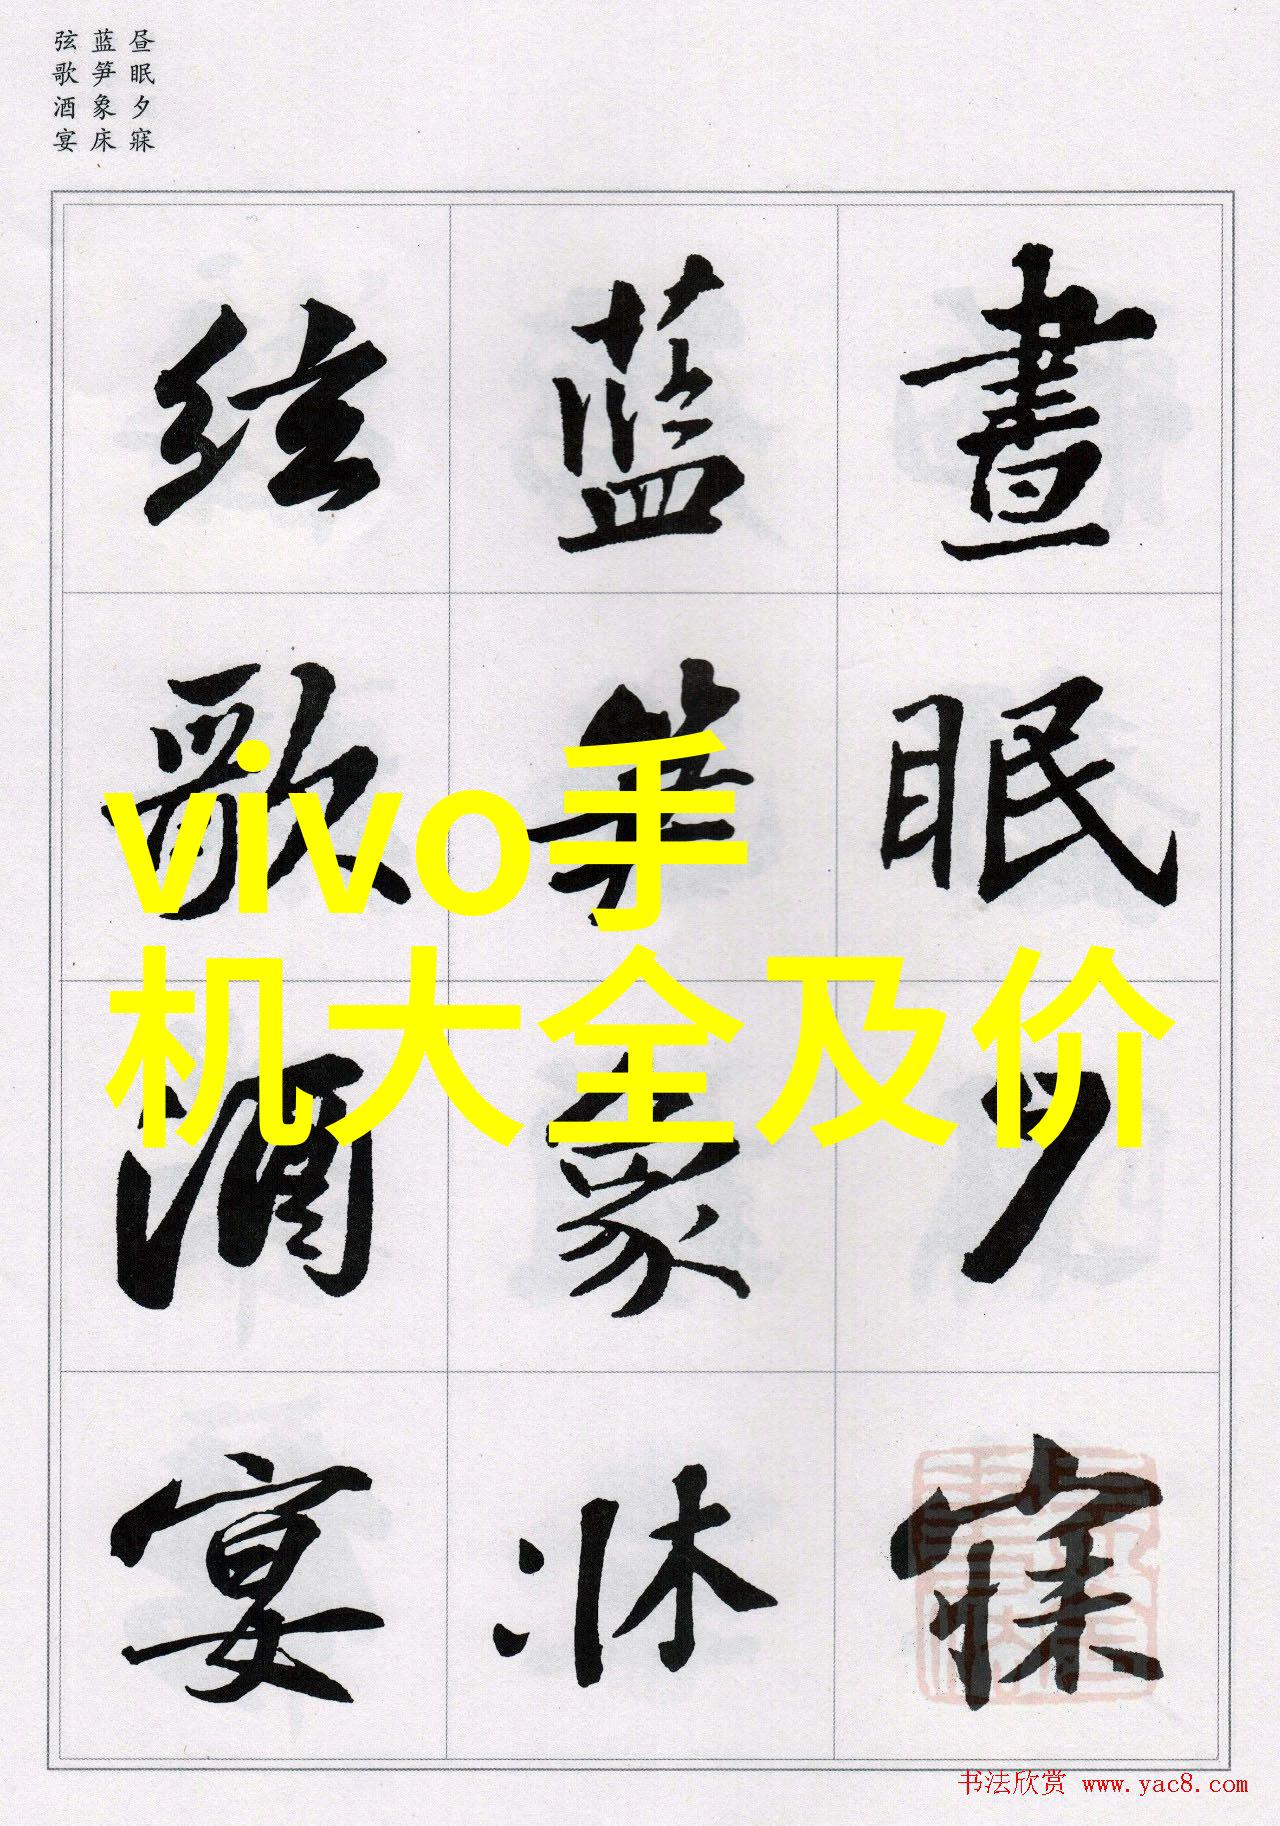 昼眠夕寐
蓝笋象床
弦歌酒宴
晝眠夕寐
蓝笋象牀
絃歌酒宴
vivo手
机大全及价
书法欣赏 www.yac8.com